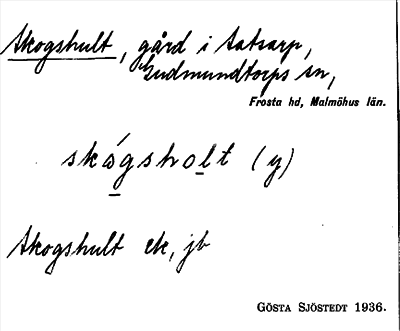 Skogshult, gård i Satsarp,
Gudmundtorps sn,
Frosta hd, Malmöhus län.
skógsho̲lt (y)
Skogshult ek, jb
GÖSTA SJÖSTEDT 1936.